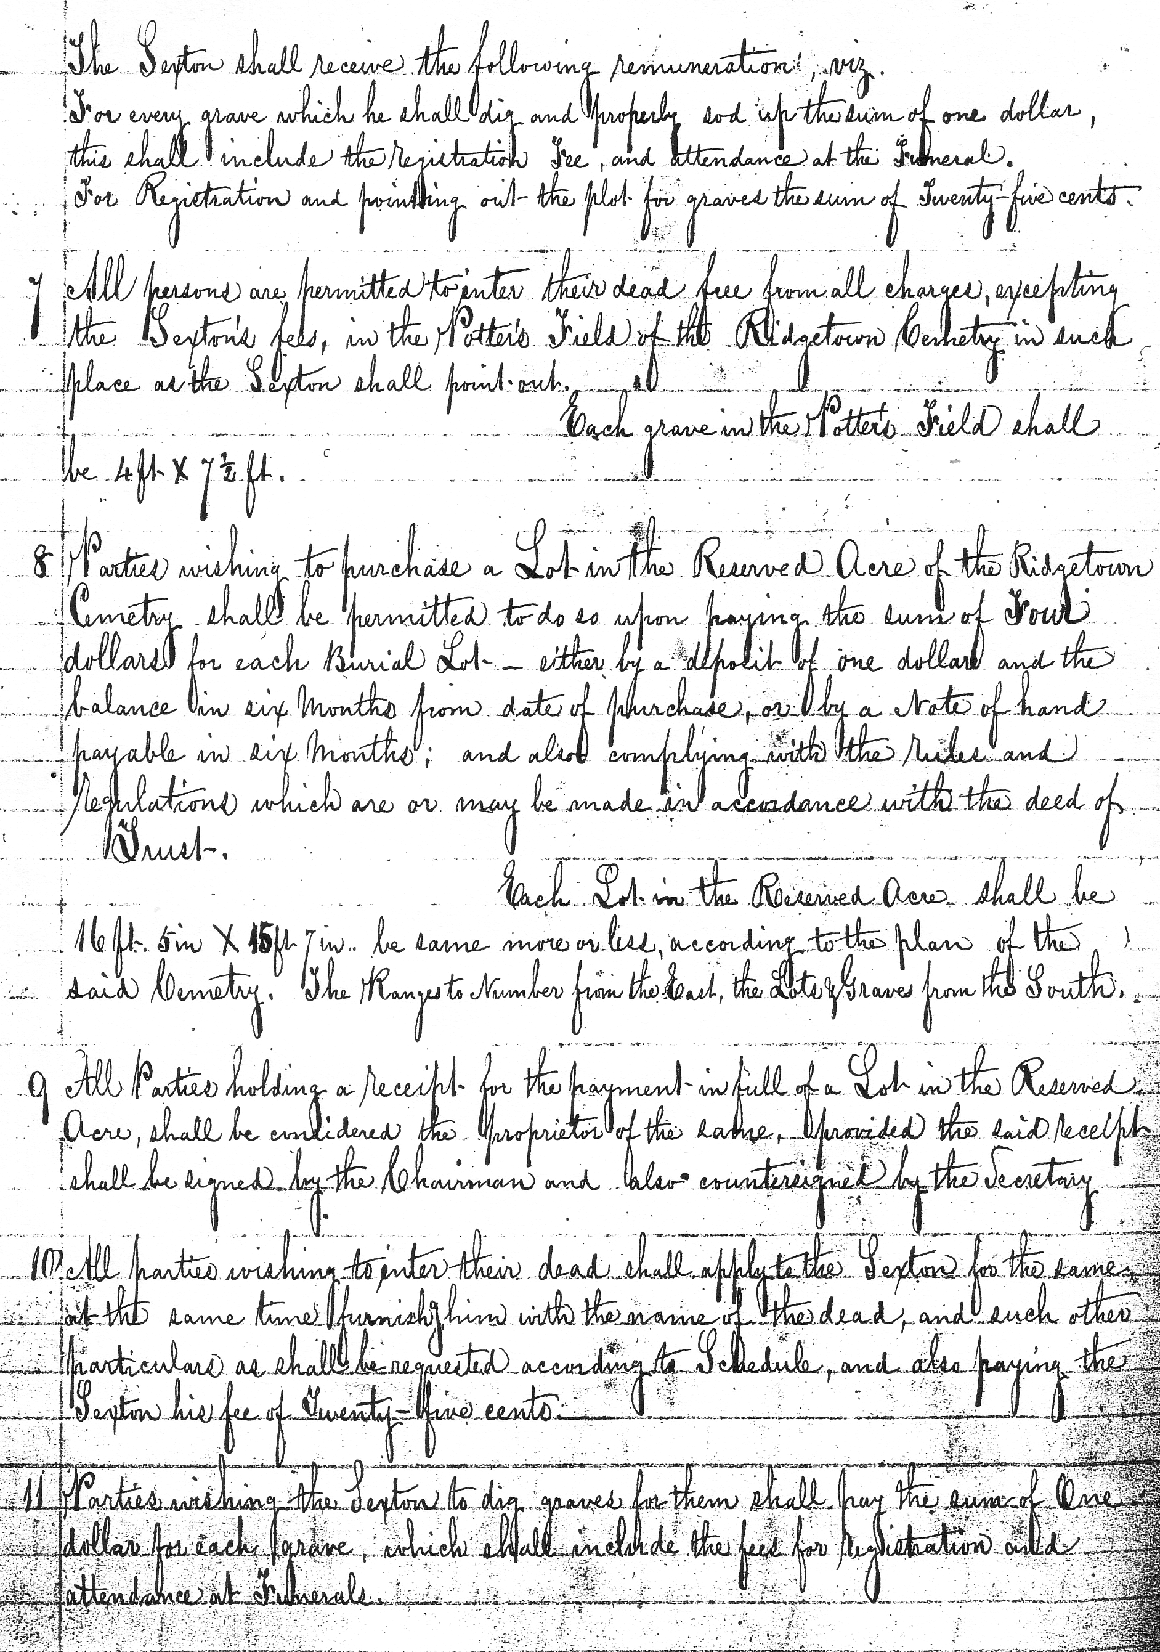 The Sexton shall receive the following remuneration, viz.
For every grave which he shall dig and properly sod up the sum of one dollar,
this shall include the registration Fee, and attendance at the Funeral.
For Registration and pointing out the plot for graves the sum of Twenty-five cents.
7 All persons are permitted to inter their dead free from all charges, excepting
the Sexton's fees, in the Potter's Field of the Ridgetown Cemetry in such
place as the Sexton shall point out.
Each grave in the Potter's Field shall
be 4 ft X 7 ½ ft.
8 Parties wishing to purchase a Lot in the Reserved Acre of the Ridgetown
Cemetry shall be permitted to do so upon paying the sum of Four
dollars for each Burial Lot - either by a deposit of one dollar and the
balance in six Months from date of purchase, or by a Note of hand
payable in six Months; and also complying with the rules and
regulations which are or may be made in accordance with the deed of
Trust.
Each Lot in the Reserved Acre shall be
16 ft. 5 in X 15 ft 7 in.. be same more or less, according to the plan of the
said Cemetry. The Ranges to Number from the East, the Lots & Graves from the South.
9 All Parties holding a receipt for the payment in full of a Lot in the Reserved
Acre, shall be considered the proprietor of the same, provided the said receipt
shall be signed by the Chairman and also countersigned by the Secretary
10 All parties wishing to inter their dead shall apply to the Sexton for the same,
at the same time furnish him with the name of the dead, and such other
particulars as shall be requested according to Schedule, and also paying the
Sexton his fee of Twenty-five cents.
11 Parties wishing the Sexton to dig graves for them shall pay the sum of One
dollar for each grave, which shall include the fees for registration and
attendance at Funerals.